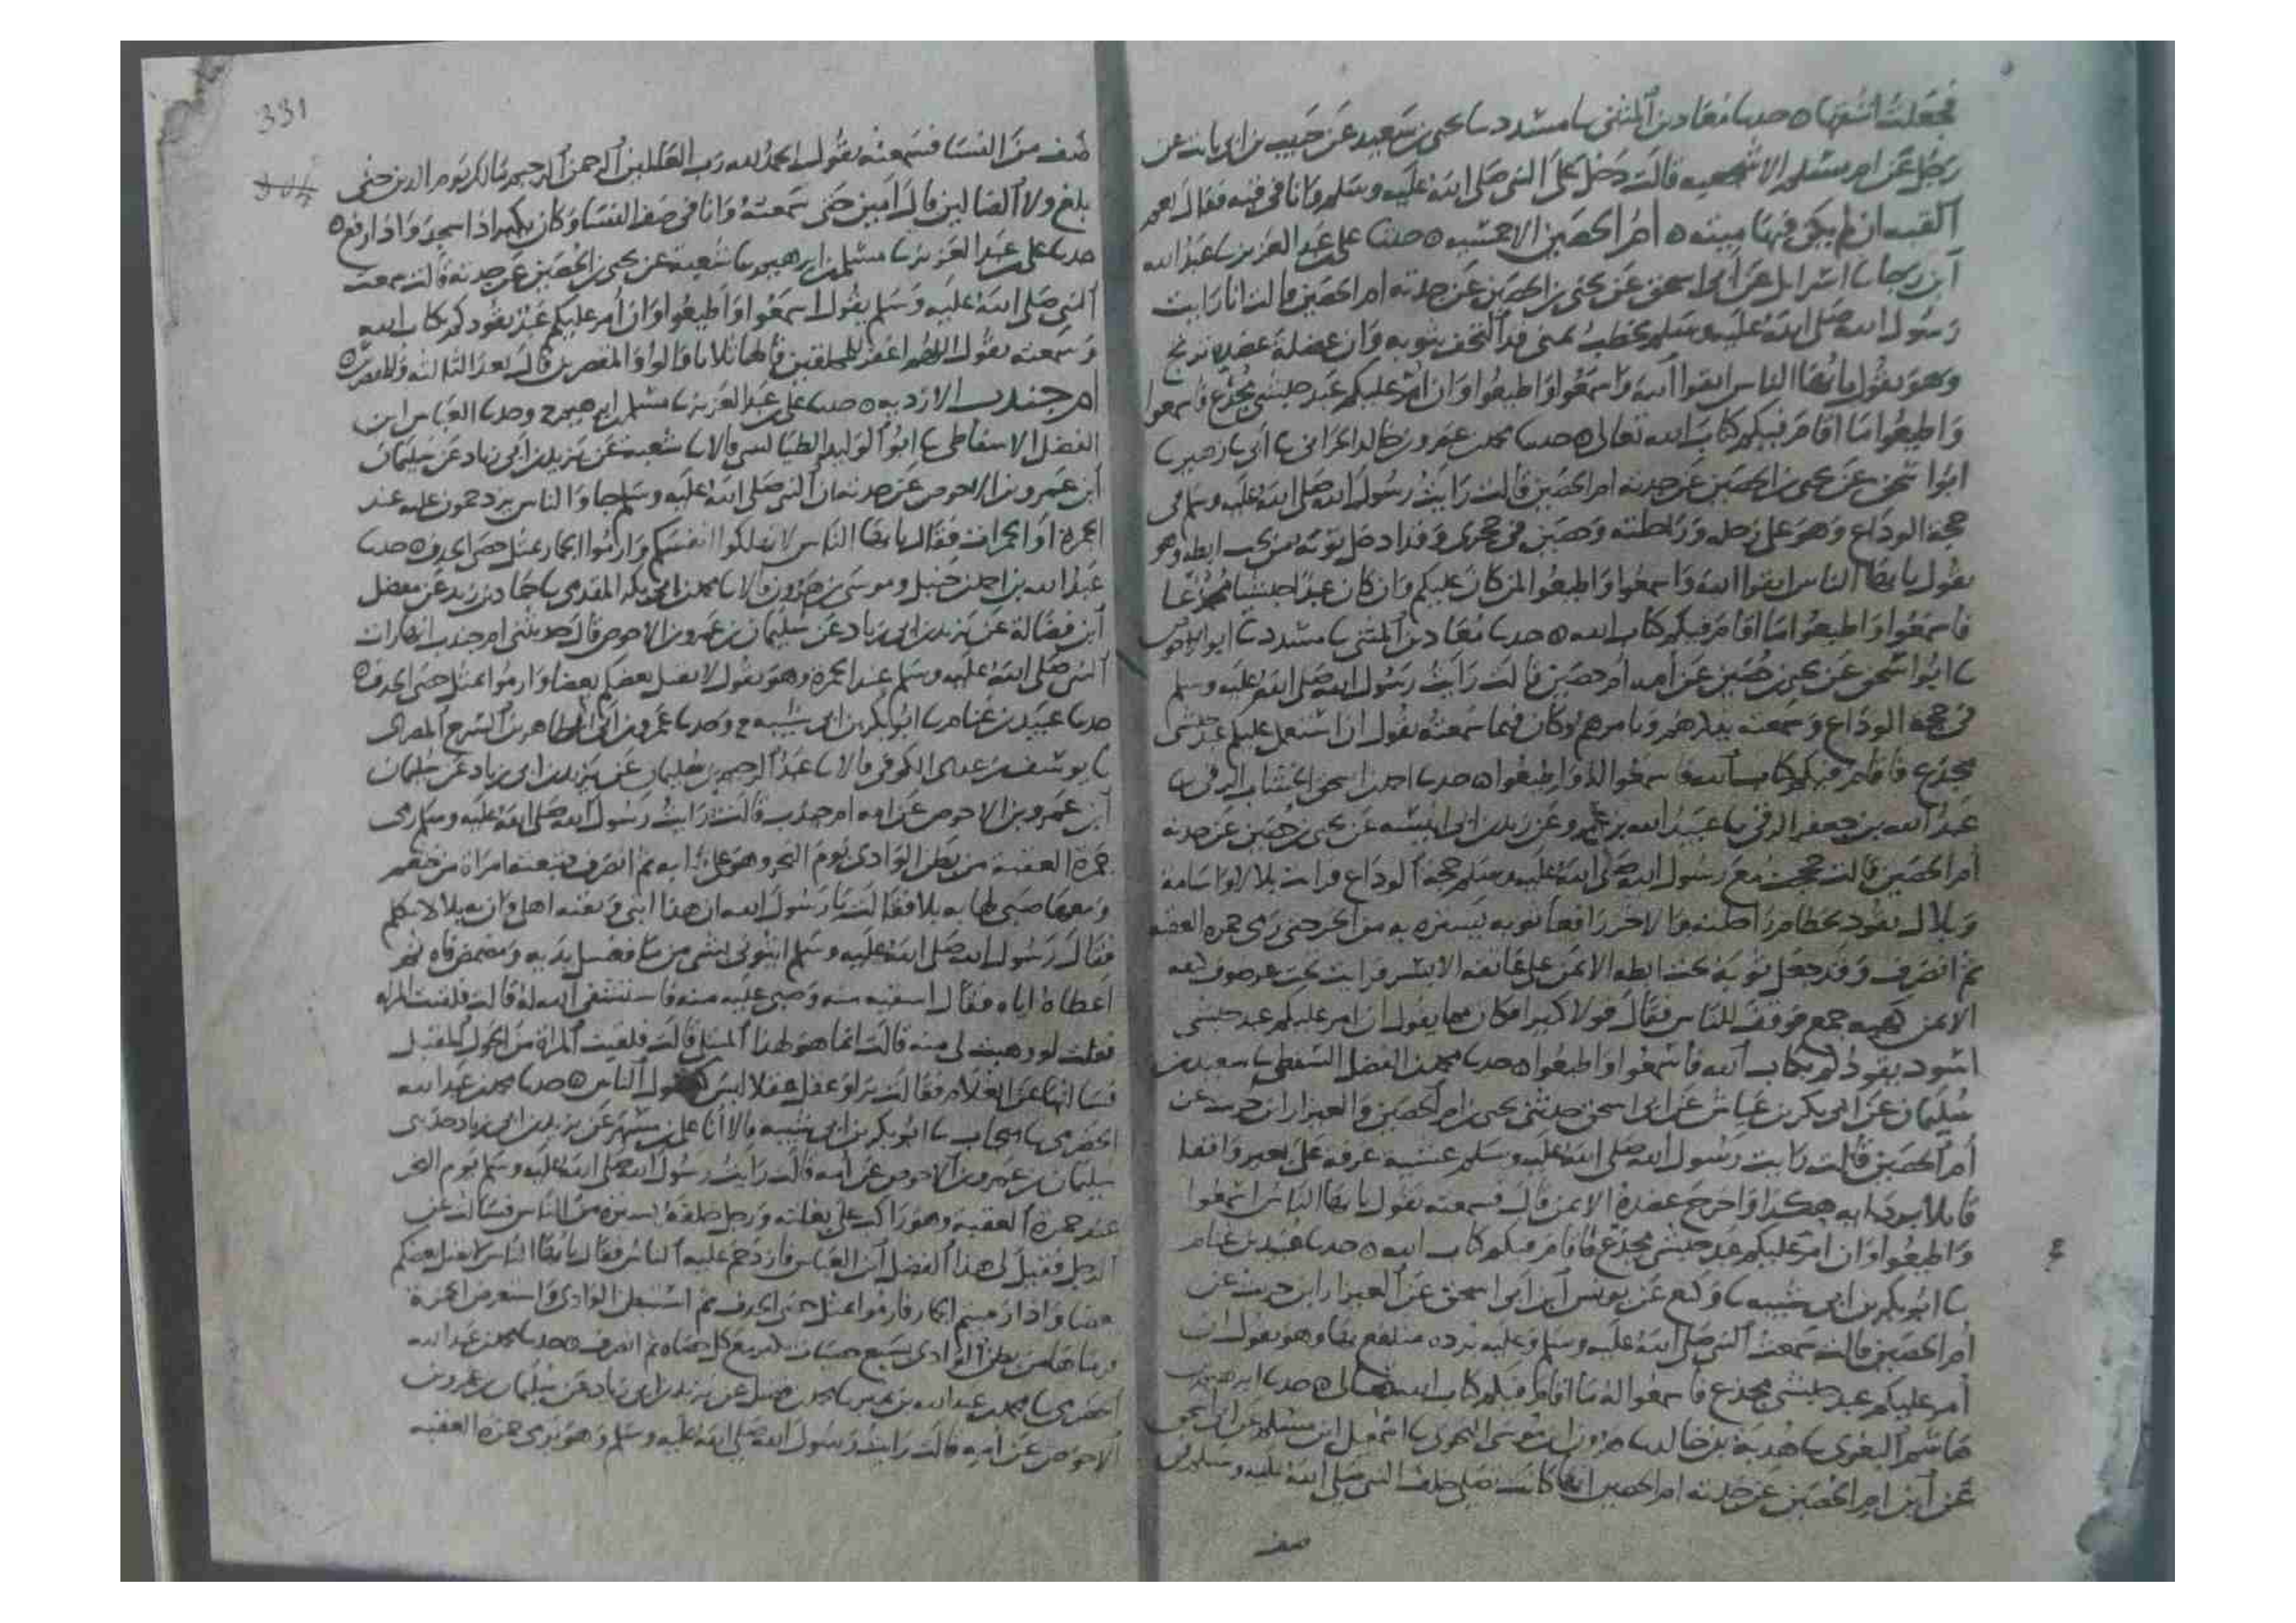 فجعلت اتتبعها ○ حدسا معاد بن المثنى سا مسدد سا يحيى بن سعيد عن حبيب بن ابى ثابت عن
رجل عن ام مسلم الاشجعيه قالت دخل على النبى صلى الله عليه وسلم وانا فى قبه فقال نعم
القبه ان لم يكن فيها ميته ○ ام الحصين الاحمسيه ○ حدثنا على بن عبد العزيز سا عبد الله
ابن رجا سا اسرايل عن ابى اسحق عن يحيى بن الحصين عن جدته ام الحصين قالت انا رايت
رسول الله صلى الله عليه وسلم يخطب بمنى قد التحف بثوبه وان عضلة عضده ترتج
وهو يقول يا ايها الناس اتقوا الله واسمعوا واطيعوا وان امر عليكم عبد حبشى مجدع فاسمعوا
واطيعوا ما اقام فيكم كتاب الله تعالى ○ حدسا محمد بن عمرو بن خالد الحرانى سا ابى سا زهير سا
ابوا اسحق عن يحيى بن الحصين عن جدته ام الحصين قالت رايت رسول الله صلى الله عليه وسلم فى
حجة الوداع وهو على رحله وراحلته وحصين فى حجرى وقد ادخل ثوبه من تحت ابطه وهو
يقول يا ايها الناس اتقوا الله واسمعوا واطيعوا لمن كان عليكم وان كان عبدا حبشيا مجدعا
فاسمعوا واطيعوا ما اقام فيكم كتاب الله ○ حدسا معاد بن المثنى سا مسدد سا ابو الاحوص
سا ابوا اسحق عن يحيى بن حصين عن امه ام حصين قالت رايت رسول الله صلى الله عليه وسلم
فى حجة الوداع وسمعته ينهاهم ويامرهم وكان فيما سمعته يقول ان استعمل عليكم عبد حبشى
مجدع فاقام فيكم كتاب الله فاسمعوا له واطيعوا ○ حدسا احمد بن اسحق الخشاب الرقى سا
عبد الله بن جعفر الرقى سا عبيد الله بن عمرو عن زيد بن ابى انيسه عن يحيى بن حصين عن جدته
ام الحصين قالت حججت مع رسول الله صلى الله عليه وسلم حجة الوداع فرايت بلالا واسامة
وبلال يقود بخطام راحلته والاخر رافعا ثوبه يستره به من الحر حتى رمى جمره العقبه
ثم انصرف وقد جعل ثوبه تحت ابطه الايمن على عاتقه الايسر فرايت تحت غرضوف كتفه
الايمن كهيه جمع فوقف للناس فقال قولا كثيرا فكان مما يقول ان امر عليكم عبد حبشى
اسود يقودكم بكتاب الله فاسمعوا واطيعوا ○ حدسا محمد بن الفضل السقطى سا سعيد بن
سليمان عن ابى بكر بن عياش عن ابى اسحق حدثنى يحيى بن ام الحصين والعيزار ابن حريث عن
ام الحصين قالت رايت رسول الله صلى الله عليه وسلم عشية عرفه على بعير واقفا
قايلا بردايه هكذا واخرج عضده الايمن قال فسمعته يقول يا ايها الناس اسمعوا
واطيعوا وان امر عليكم عبد حبشى مجدع فاقام فيكم كتاب الله ○ حدسا عبيد بن غنام
سا ابو بكر بن ابى شيبه سا وكيع عن يونس ابن ابى اسحق عن العيزار ابن حريث عن
ام الحصين قالت سمعت النبى صلى الله عليه وسلم وعليه برده متلفع بها وهو يقول ان
امر عليكم عبد حبشى مجدع فاسمعوا له ما اقام فيكم كتاب الله تعالى ○ حدسا ابرهيم بن
هاشم البغوى سا هدبة بن خالد سا هرون ابن موسى النحوى سا اسمعيل ابن مسلم عن ابى اسحق
عن ابن ام الحصين عن جدته ام الحصين انها كانت تصلى خلف النبى صلى الله عليه وسلم فى
صف
331
صف من النسا فسمعته يقول الحمد لله رب العالمين الرحمن الرحيم مالك يوم الدين حتى
بلغ ولا الضالين قال امين حتى سمعته وانا فى صف النسا وكان يكبر اذا سجد واذا رفع ○
حدسا على بن عبد العزيز سا مسلم بن ابرهيم سا شعبة عن يحيى بن الحصين عن جدته قالت سمعت
النبى صلى الله عليه وسلم يقول اسمعوا واطيعوا وان امر عليكم عبد يقودكم بكتاب الله
وسمعته يقول اللهم اغفر للمحلقين قالها ثلاثا قالوا والمقصرين قال بعد الثالثه وللمقصرين ○
ام جندب الازديه ○ حدسا على بن عبد العزيز سا مسلم ابن ابرهيم ح وحدسا العباس ابن
الفضل الاسفاطى سا ابوا الوليد الطيالسى قالا سا شعبة عن يزيد بن ابى زياد عن سليمان
ابن عمرو بن الاحوص عن جدته ان النبى صلى الله عليه وسلم جا والناس يزدحمون عليه عند
الجمرة او الجمرات فقال يا ايها الناس لا تهلكوا انفسكم وارموا الجمار بمثل حصى الخذف ○ حدسا
عبد الله بن احمد بن حنبل وموسى بن هرون قالا سا محمد بن ابى بكر المقدمى سا حماد بن زيد عن مفضل
ابن فضالة عن يزيد بن ابى زياد عن سليمان بن عمرو بن الاحوص قال حدثتنى ام جندب انها رات
النبى صلى الله عليه وسلم عند الجمرة وهو يقول لا يقتل بعضكم بعضا وارموا بمثل حصى الخذف ○
حدسا عبيد بن غنام سا ابو بكر بن ابى شيبه ح وحدسا عمرو بن ابى الطاهر بن السرح المصرى
سا يوسف بن عدى الكوفى قالا سا عبد الرحيم بن سليمان عن يزيد بن ابى زياد عن سليمان
ابن عمرو بن الاحوص عن امه ام جندب قالت رايت رسول الله صلى الله عليه وسلم رمى
جمرة العقبة من بطن الوادى يوم النحر وهو على دابه ثم انصرف فتبعته امراة من خثعم
ومعها صبى لها به بلا فقالت يا رسول الله ان هذا ابنى وبقيه اهلى وان به بلا لا يتكلم
فقال رسول الله صلى الله عليه وسلم ايتونى بشى من ما فغسل يديه ومضمض فاه ثم
اعطاها اياه فقال اسقيه منه وصبى عليه منه فاستشفى الله له قالت فلقيت المراه
فقلت لو وهبت لى منه قالت انما هو لهذا المبتلى قالت فلقيت المراة من الحول المقبل
فسالتها عن الغلام فقالت برا وعقل عقلا ليس كعقول الناس ○ حدسا محمد بن عبد الله
الحضرمى سا منجاب سا ابو بكر بن ابى شيبه قالا انا على بن مسهر عن يزيد بن ابى زياد حدثنى
سليمان بن عمرو بن الاحوص عن امه قالت رايت رسول الله صلى الله عليه وسلم يوم النحر
عند جمرة العقبه وهو راكب على بغلته ورجل خلفه يستره من الناس فسالت عن
الرجل فقيل لى هذا الفضل ابن العباس فازدحم عليه الناس فقال يا ايها الناس لا يقتل بعضكم
بعضا واذا رميتم الجمار فارموا بمثل حصى الخذف ثم استبطن الوادى واستعرض الجمرة
فرماها من بطن الوادى بسبع حصيات يكبر مع كل حصاه ثم انصرف ○ حدسا محمد بن عبد الله
الحضرمى سا محمد بن عبد الله بن نمير سا محمد بن فضيل عن يزيد بن ابى زياد عن سليمان بن عمرو بن
الاحوص عن امه قالت رايت رسول الله صلى الله عليه وسلم وهو يرمى جمرة العقبه